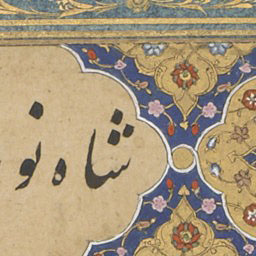 شاه نو